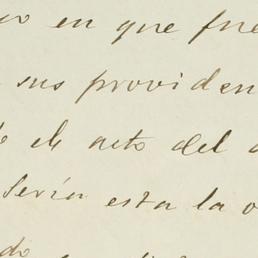 en que fue
sus providen
el acto del
Sería esta la